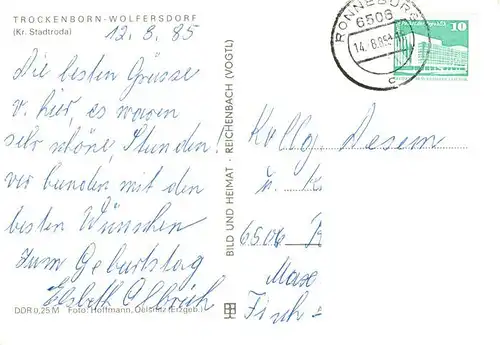 TROCKENBORN-WOLFERSDORF
(Kr. Stadtroda)
12.8.85
Die besten Grüsse
v. hier, es waren
sehr schöne Stunden!
verbunden mit den
besten Wünschen
zum Geburtstag
Elsbeth
DDR 0,25 M Foto: Hoffmann, Oelsnitz (Erzgeb.)
BILD UND HEIMAT · REICHENBACH (VOGTL)
RONNEBURG
6506
14.-8.85
c
10
Kollg.
6506 R
Max
Fisch